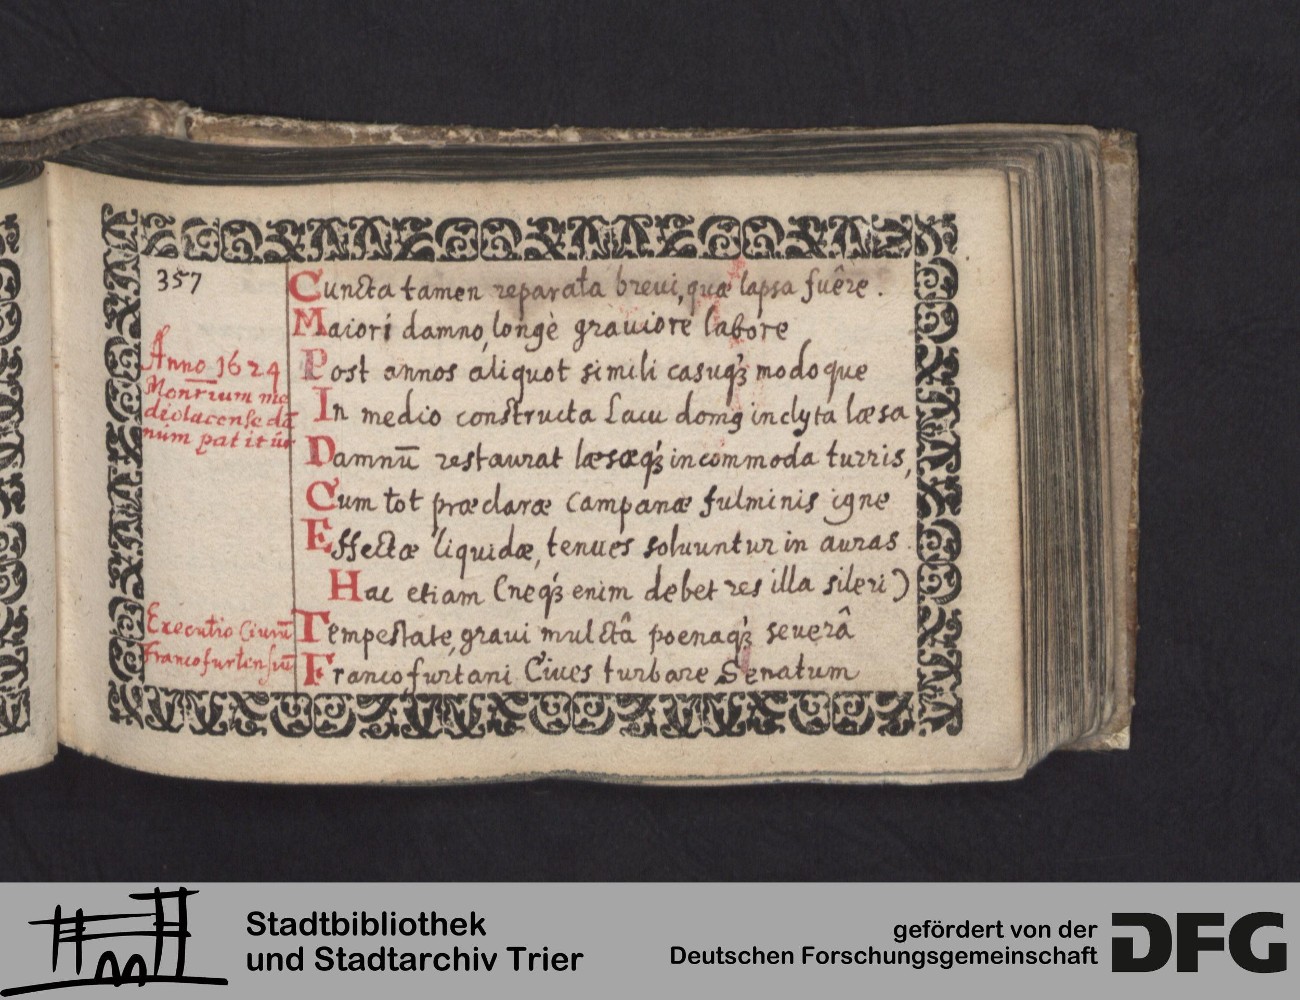 357
Cuncta tamen reparata breui, quæ lapsa fuêre.
Maiori damno, longè grauiore labore
Anno 1624
Post annos aliquot simili casuqꝫ modoque
diolacense dā
In medio constructa Lacu domꝰ inclyta læsa
num patitūr
Damnū restaurat læsæqꝫ incommoda turris,
Cum tot præclaræ campanæ fulminis igne
Effectæ liquidæ, tenues soluuntur in auras.
Hac etiam (neqꝫ enim debet res illa sileri)
Executio Ciuiū
Tempestate, graui mulctâ poenaqꝫ seuerâ
Francofurtensiū
Francofurtani Ciues turbare Senatum
Stadtbibliothek
und Stadtarchiv Trier
gefördert von der
Deutschen Forschungsgemeinschaft
DFG